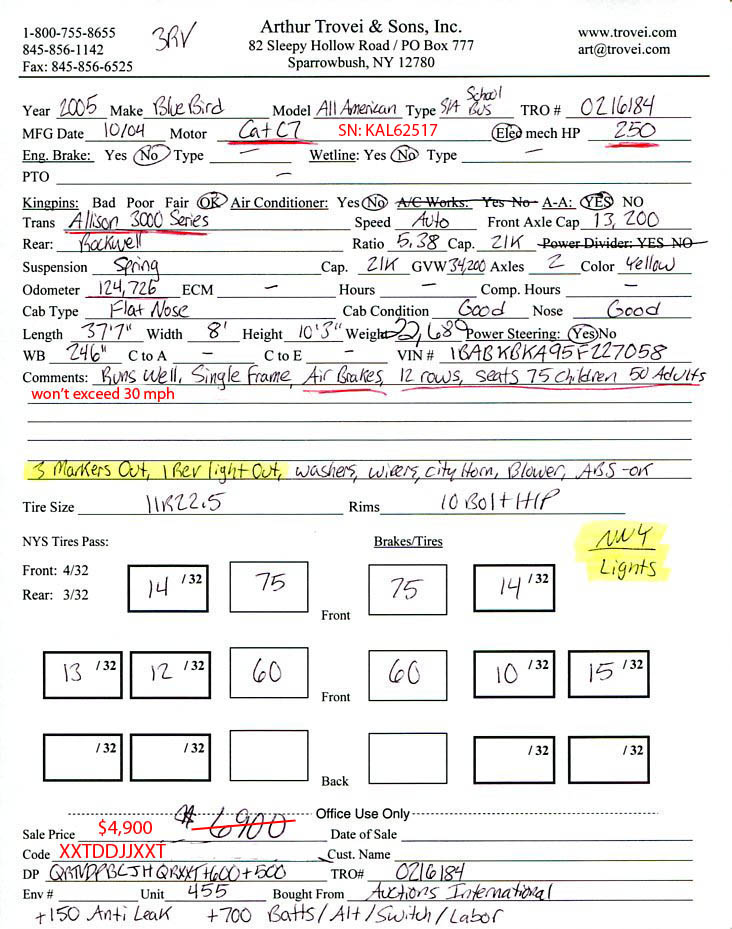 1-800-755-8655
845-856-1142
Fax: 845-856-6525
3RV
Arthur Trovei & Sons, Inc.
82 Sleepy Hollow Road / PO Box 777
Sparrowbush, NY 12780
www.trovei.com
art@trovei.com
Year 2005 Make Blue Bird Model All American Type S/A School Bus TRO # 0216184
MFG Date 10/04 Motor Cat C7 SN: KAL62517 Elec mech HP 250
Eng. Brake: Yes No Type — Wetline: Yes No Type —
PTO —
Kingpins: Bad Poor Fair OK Air Conditioner: Yes No A/C Works: Yes No A-A: YES NO
Trans Allison 3000 Series Speed Auto Front Axle Cap 13,200
Rear: Rockwell Ratio 5.38 Cap. 21K Power Divider: YES NO
Suspension Spring Cap. 21K GVW 34,200 Axles 2 Color Yellow
Odometer 124,726 ECM — Hours — Comp. Hours —
Cab Type Flat Nose Cab Condition Good Nose Good
Length 37'7" Width 8' Height 10'3" Weight 22,680 Power Steering: Yes No
WB 246" C to A — C to E — VIN # 1BABKBKA95F227058
Comments: Runs Well, Single Frame, Air Brakes, 12 rows, seats 75 children 50 Adults
won't exceed 30 mph
3 Markers Out, 1 Rev light Out, washers, wipers, city Horn, Blower, ABS-OK
Tire Size 11R22.5 Rims 10 Bolt HP
NYS Tires Pass: Brakes/Tires NWY
Lights
Front: 4/32
Rear: 3/32
14 /32 75 75 14 /32
Front
13 /32 12 /32 60 60 10 /32 15 /32
Front
/32 /32 /32 /32
Back
Office Use Only
Sale Price $4,900 6900 Date of Sale
Code XXTDDJJXXT Cust. Name
DP QRTVDPBLJH QRXXT+600+500 TRO# 0216184
Env # Unit 455 Bought From Auctions International
+150 Anti Leak +700 Batts/Alt/Switch/Labor